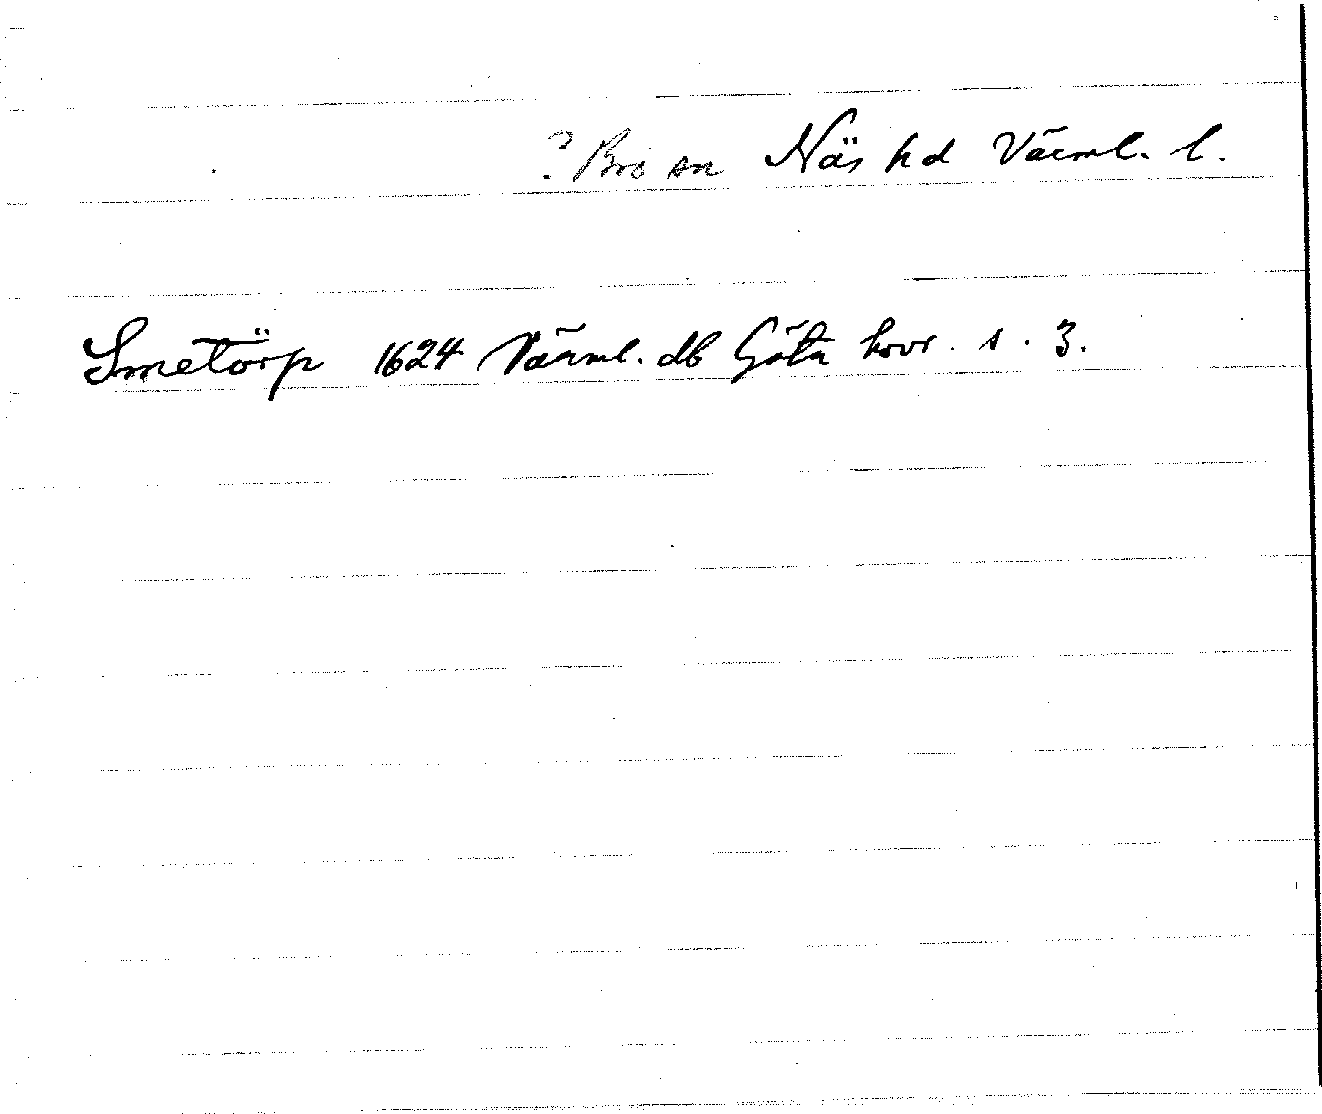 ? Bro sn Näs hd Värml. l.
Smetörp 1624 Värml. db Göta hovr. s. 3.